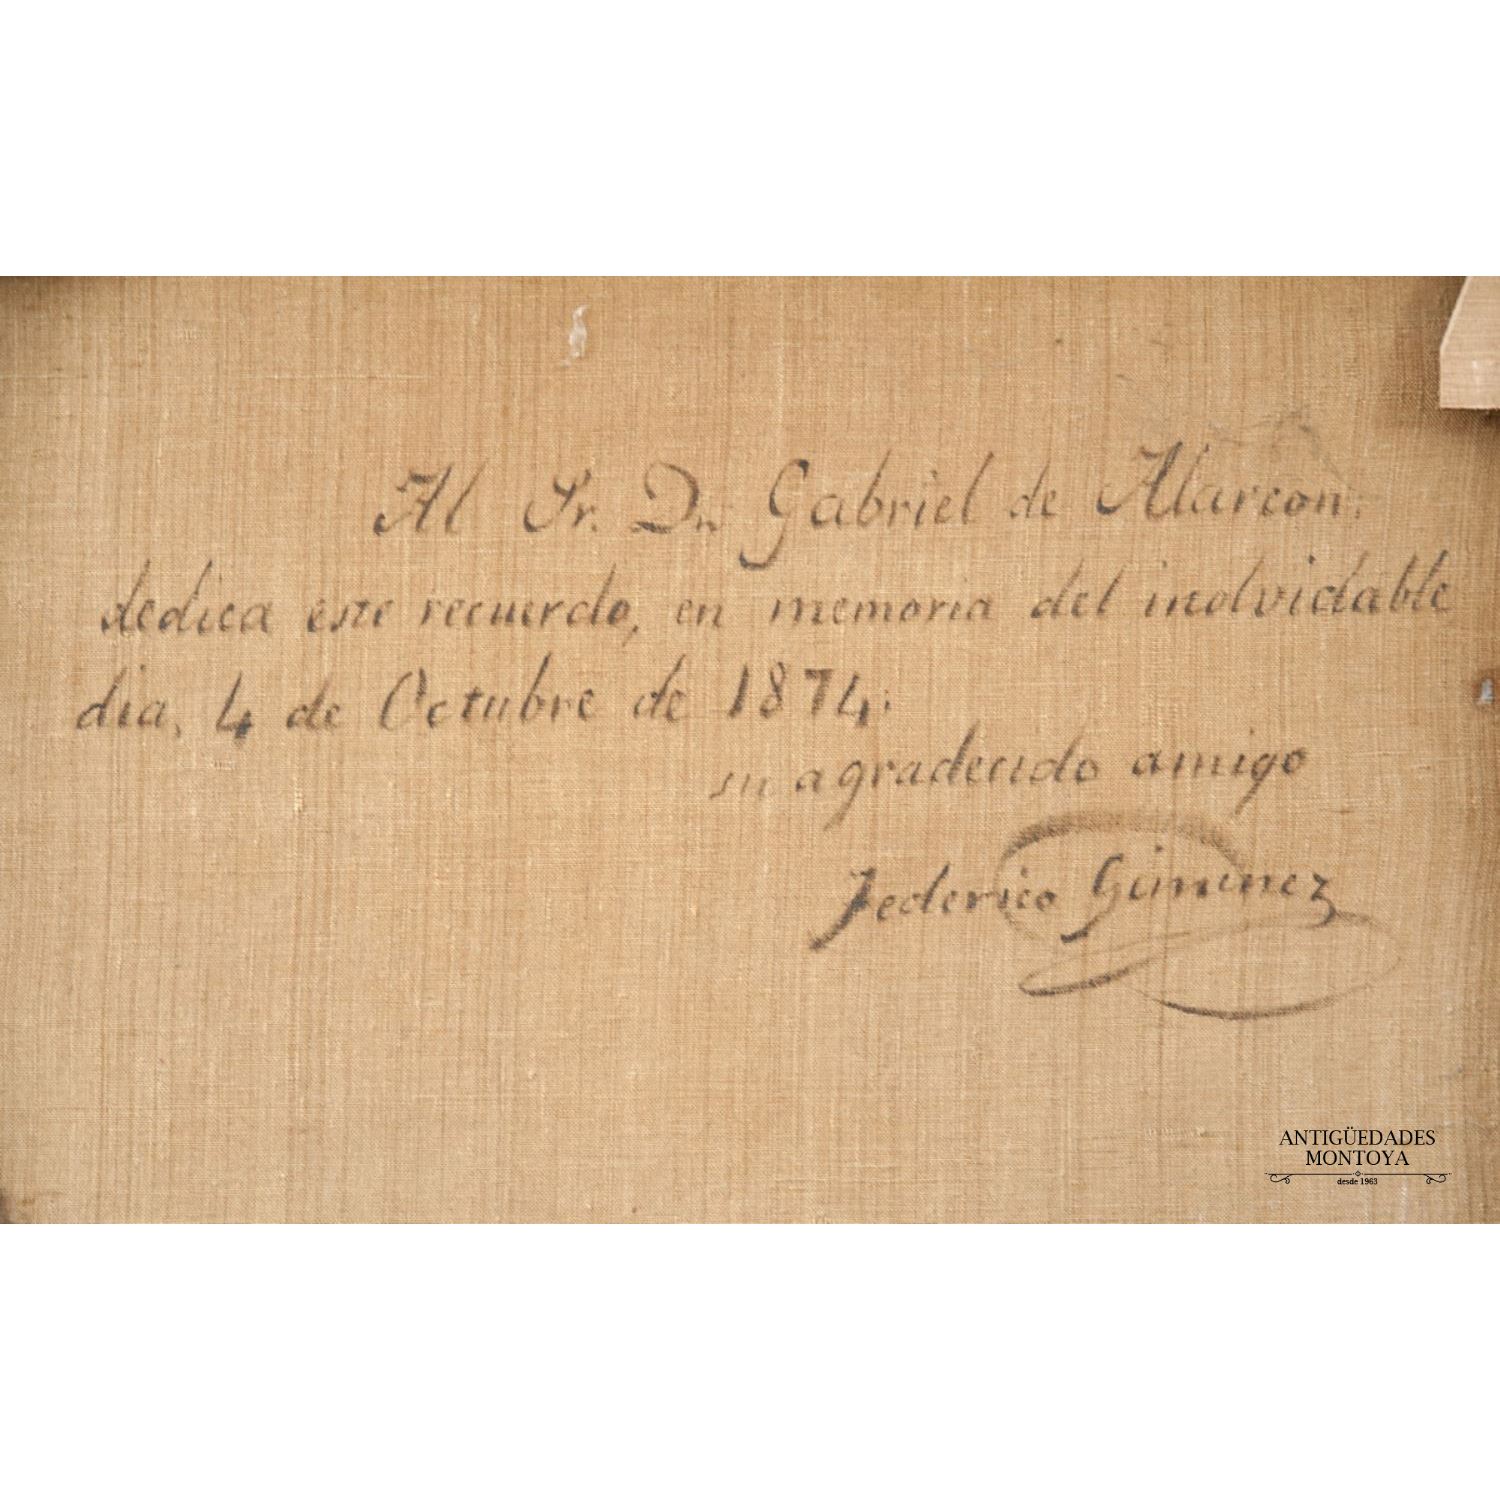 Al Sr. Dn Gabriel de Alarcon.
dedica este recuerdo, en memoria del inolvidable
dia, 4 de Octubre de 1874:
su agradecido amigo
Federico Gimenez
ANTIGÜEDADES
MONTOYA
desde 1963